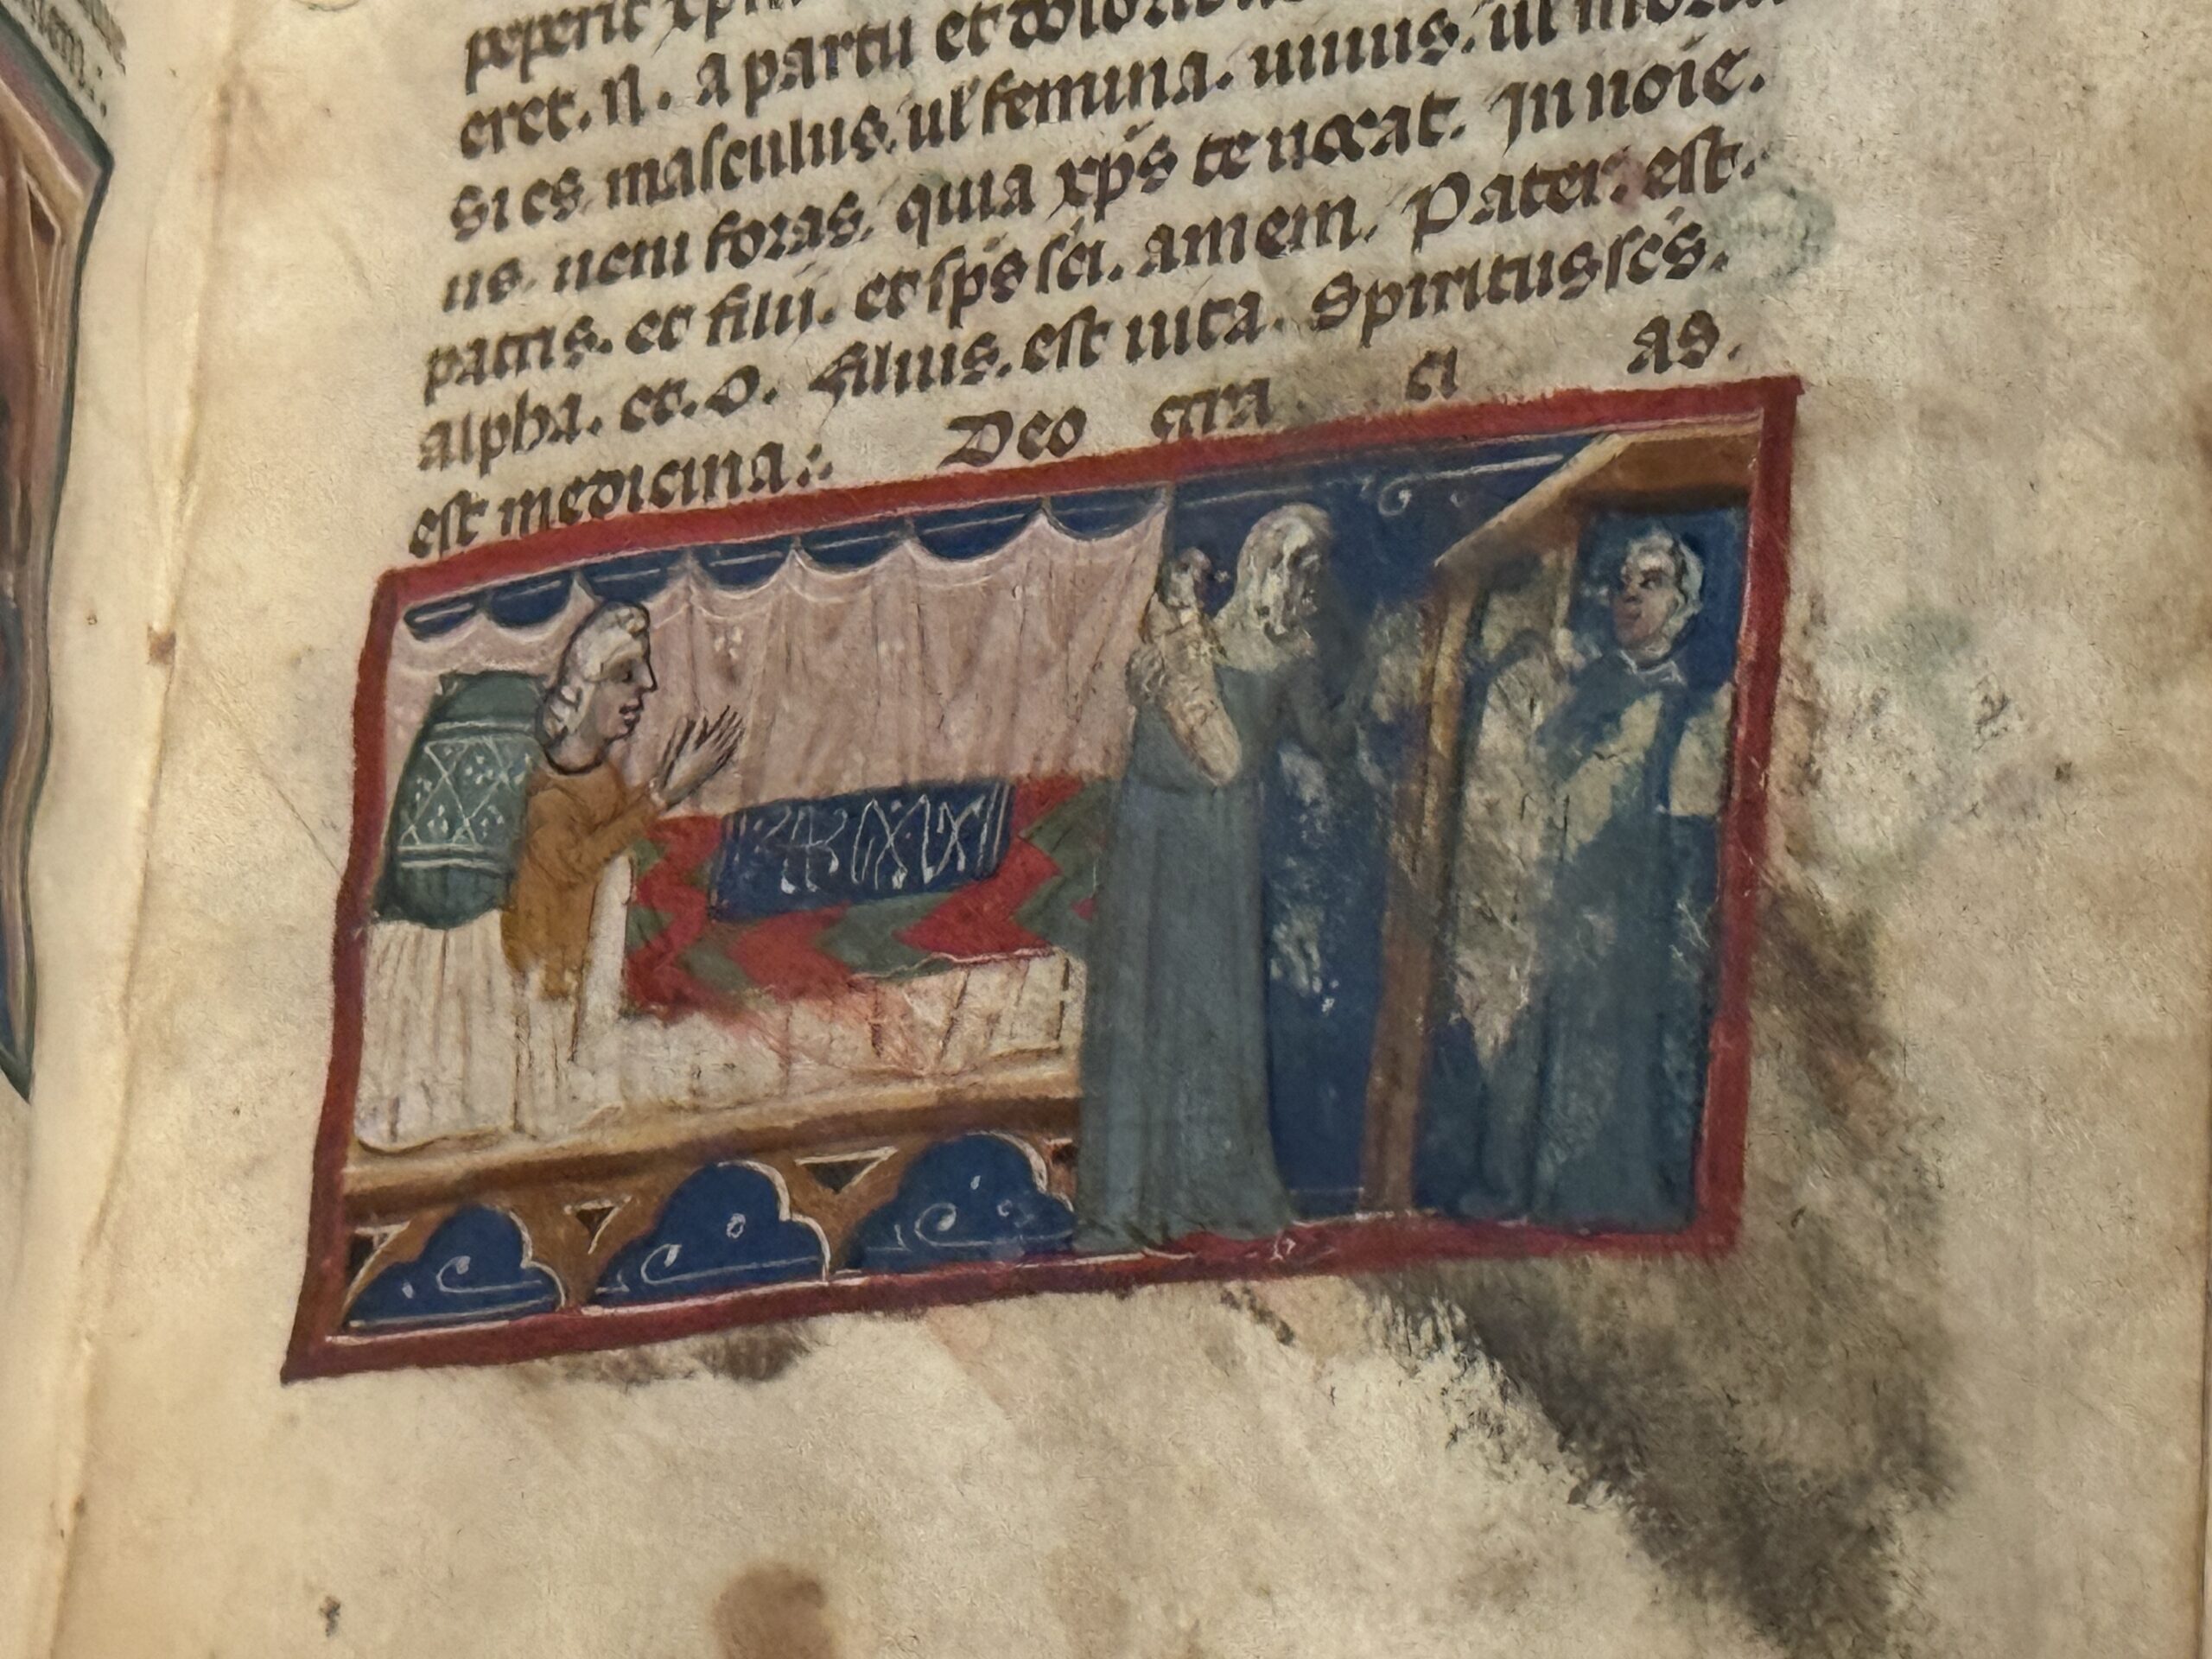 peperit xp
eret. n. a partu et dolorib
si es masculus. ul femina. uiuus. ul mortu
us. ueni foras. quia xps te uocat. In noie.
patris. et filii. et sps sci. amem. Pater. est.
alpha. et. o. Filius. est uita. Spiritus scs.
est medicina: Deo gra ci as.